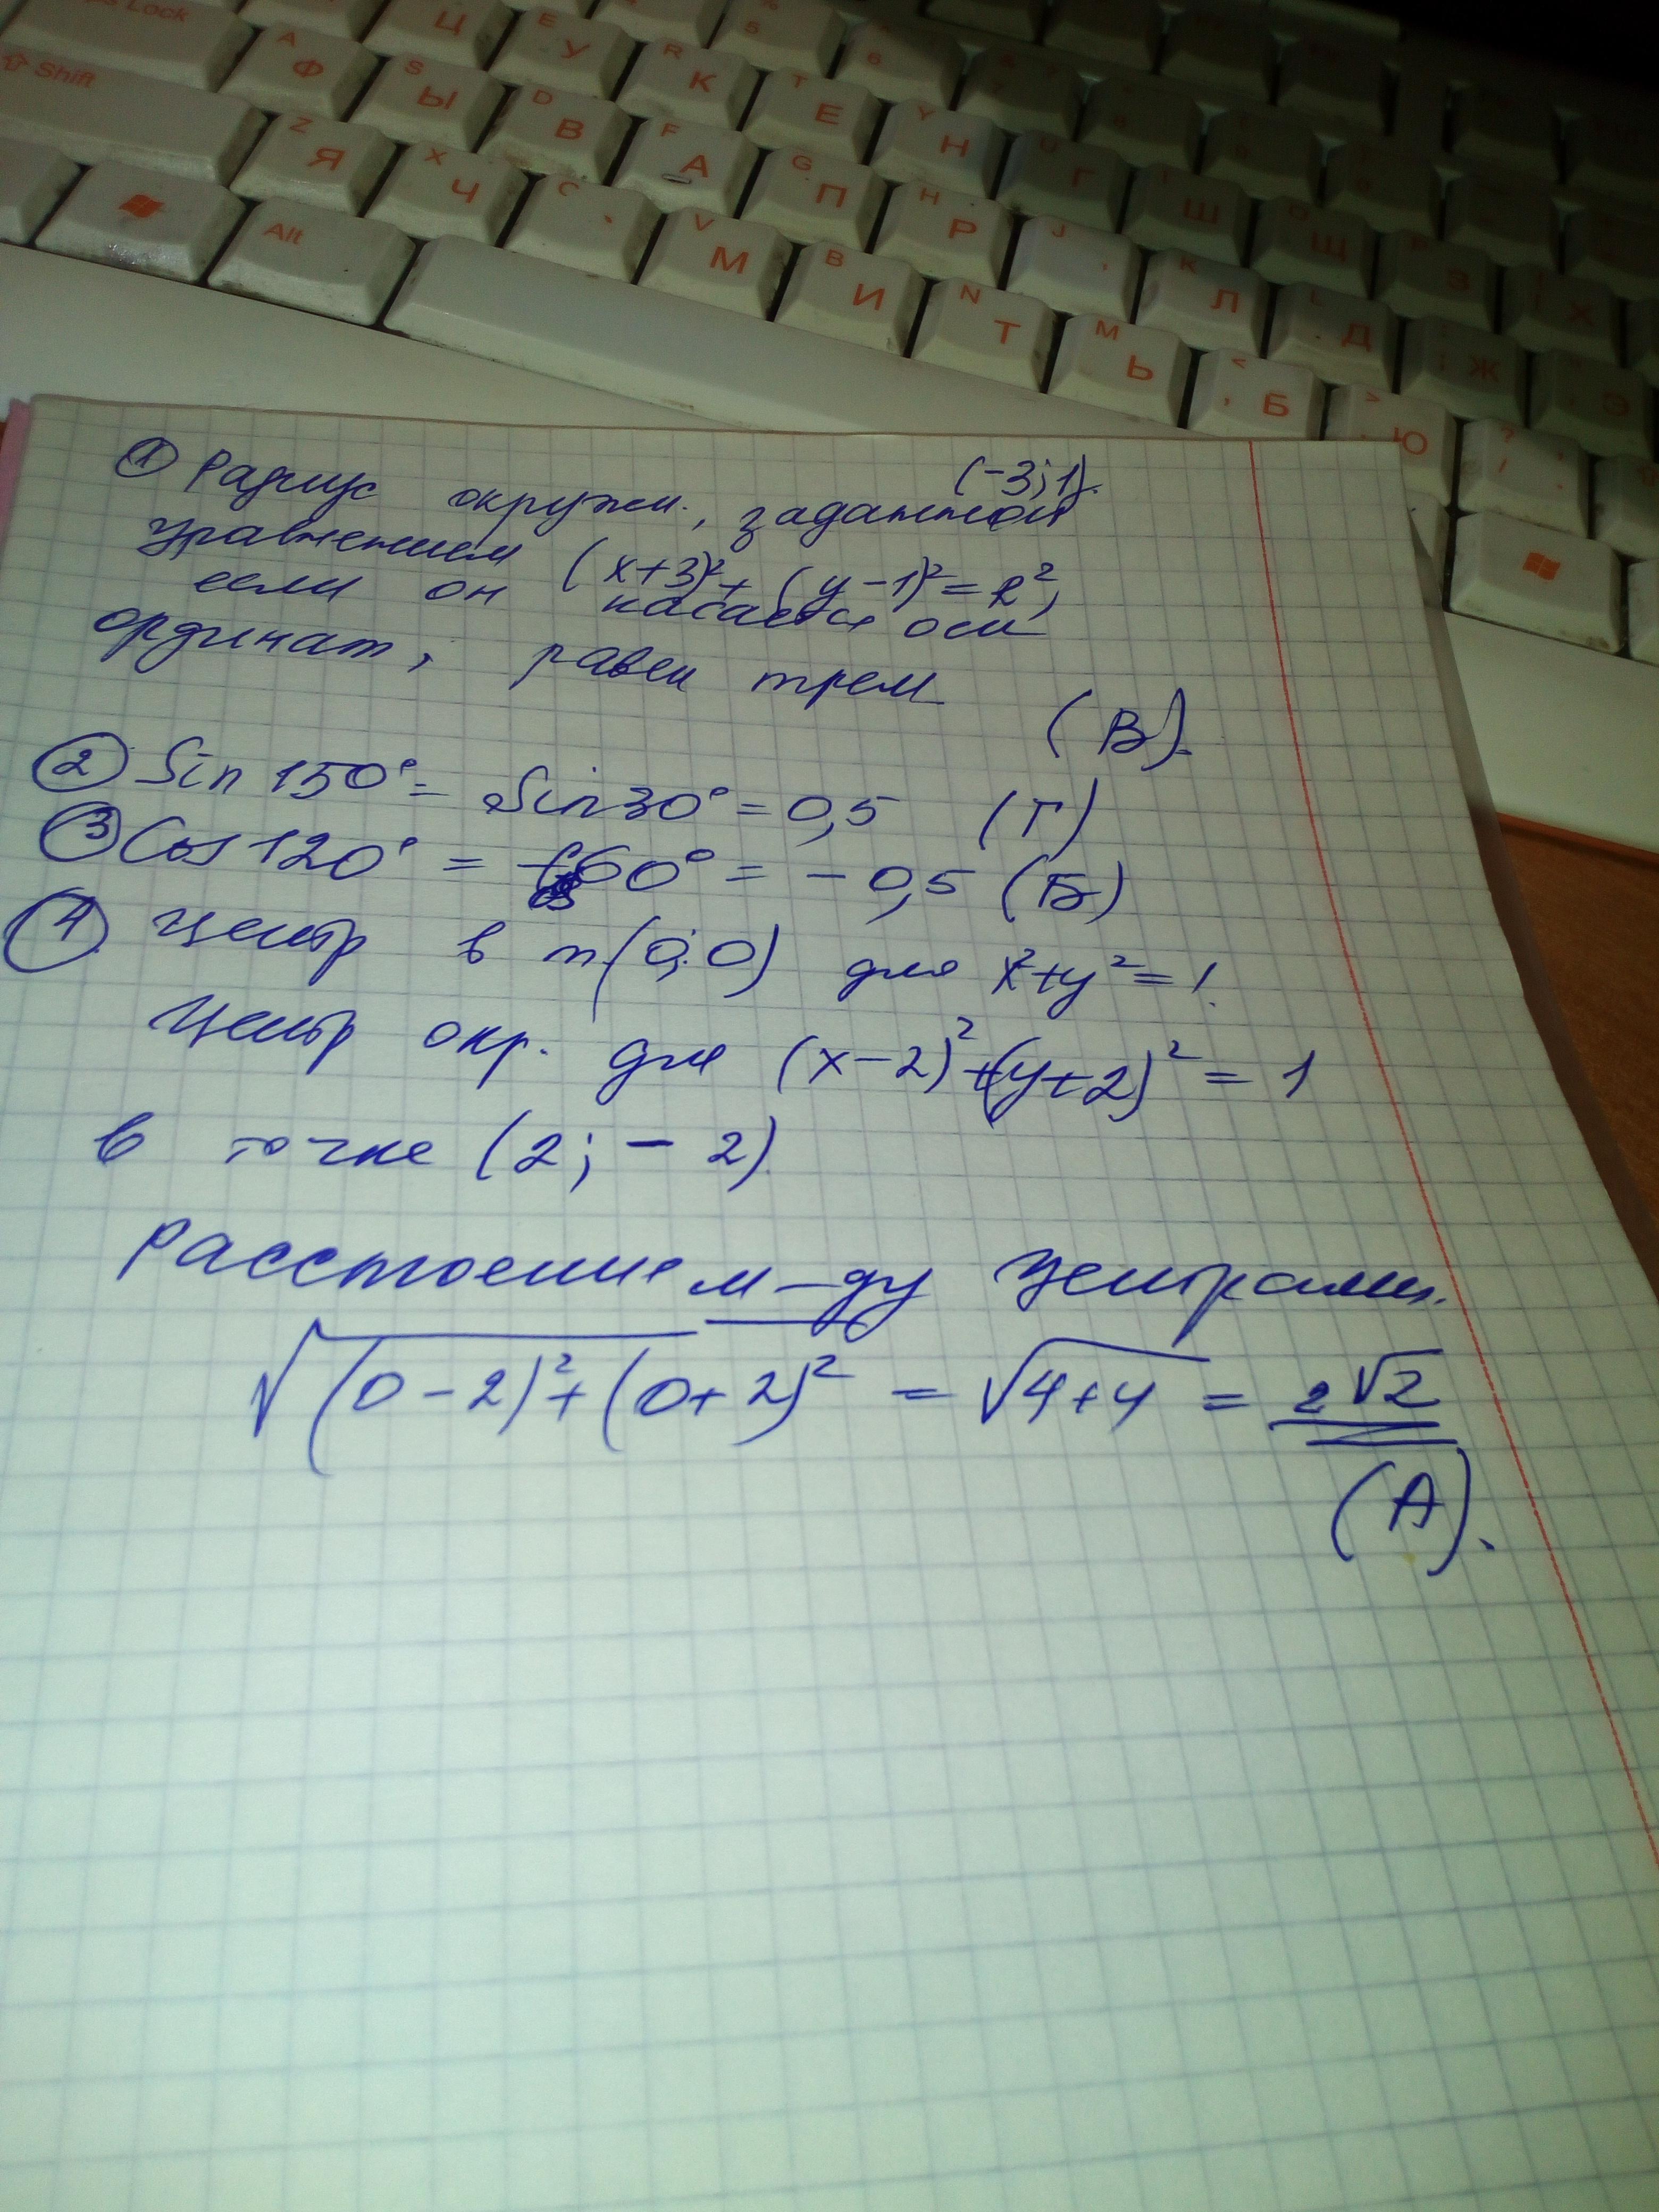 ps Lock
Ц
E У
R К
T Е
Y Н
Shift
A Ф
S Ы
D В
F А
G П
H Р
J
K Л
Д
Ж
Э
Г
Ш
Щ
З
Х
Z Я
X Ч
C
V М
B И
N Т
M Ь
< , Б
> Ю
? /
Alt
(-3;1).
① Радиус окружн., заданной
уравнением (x+3)²+(y-1)²=R²,
если он касается оси
ординат, равен трем
(В).
② Sin 150°= Sin30°=0,5 (Г)
③ Cos 120° = 60° = -0,5 (Б)
④ Центр в т(0;0) для x²+y²=1.
Центр окр. для (x-2)²+(y+2)²=1
в точке (2;-2)
Расстоение м-ду центрами.
√(0-2)²+(0+2)² = √4+4 = 2√2
(А).